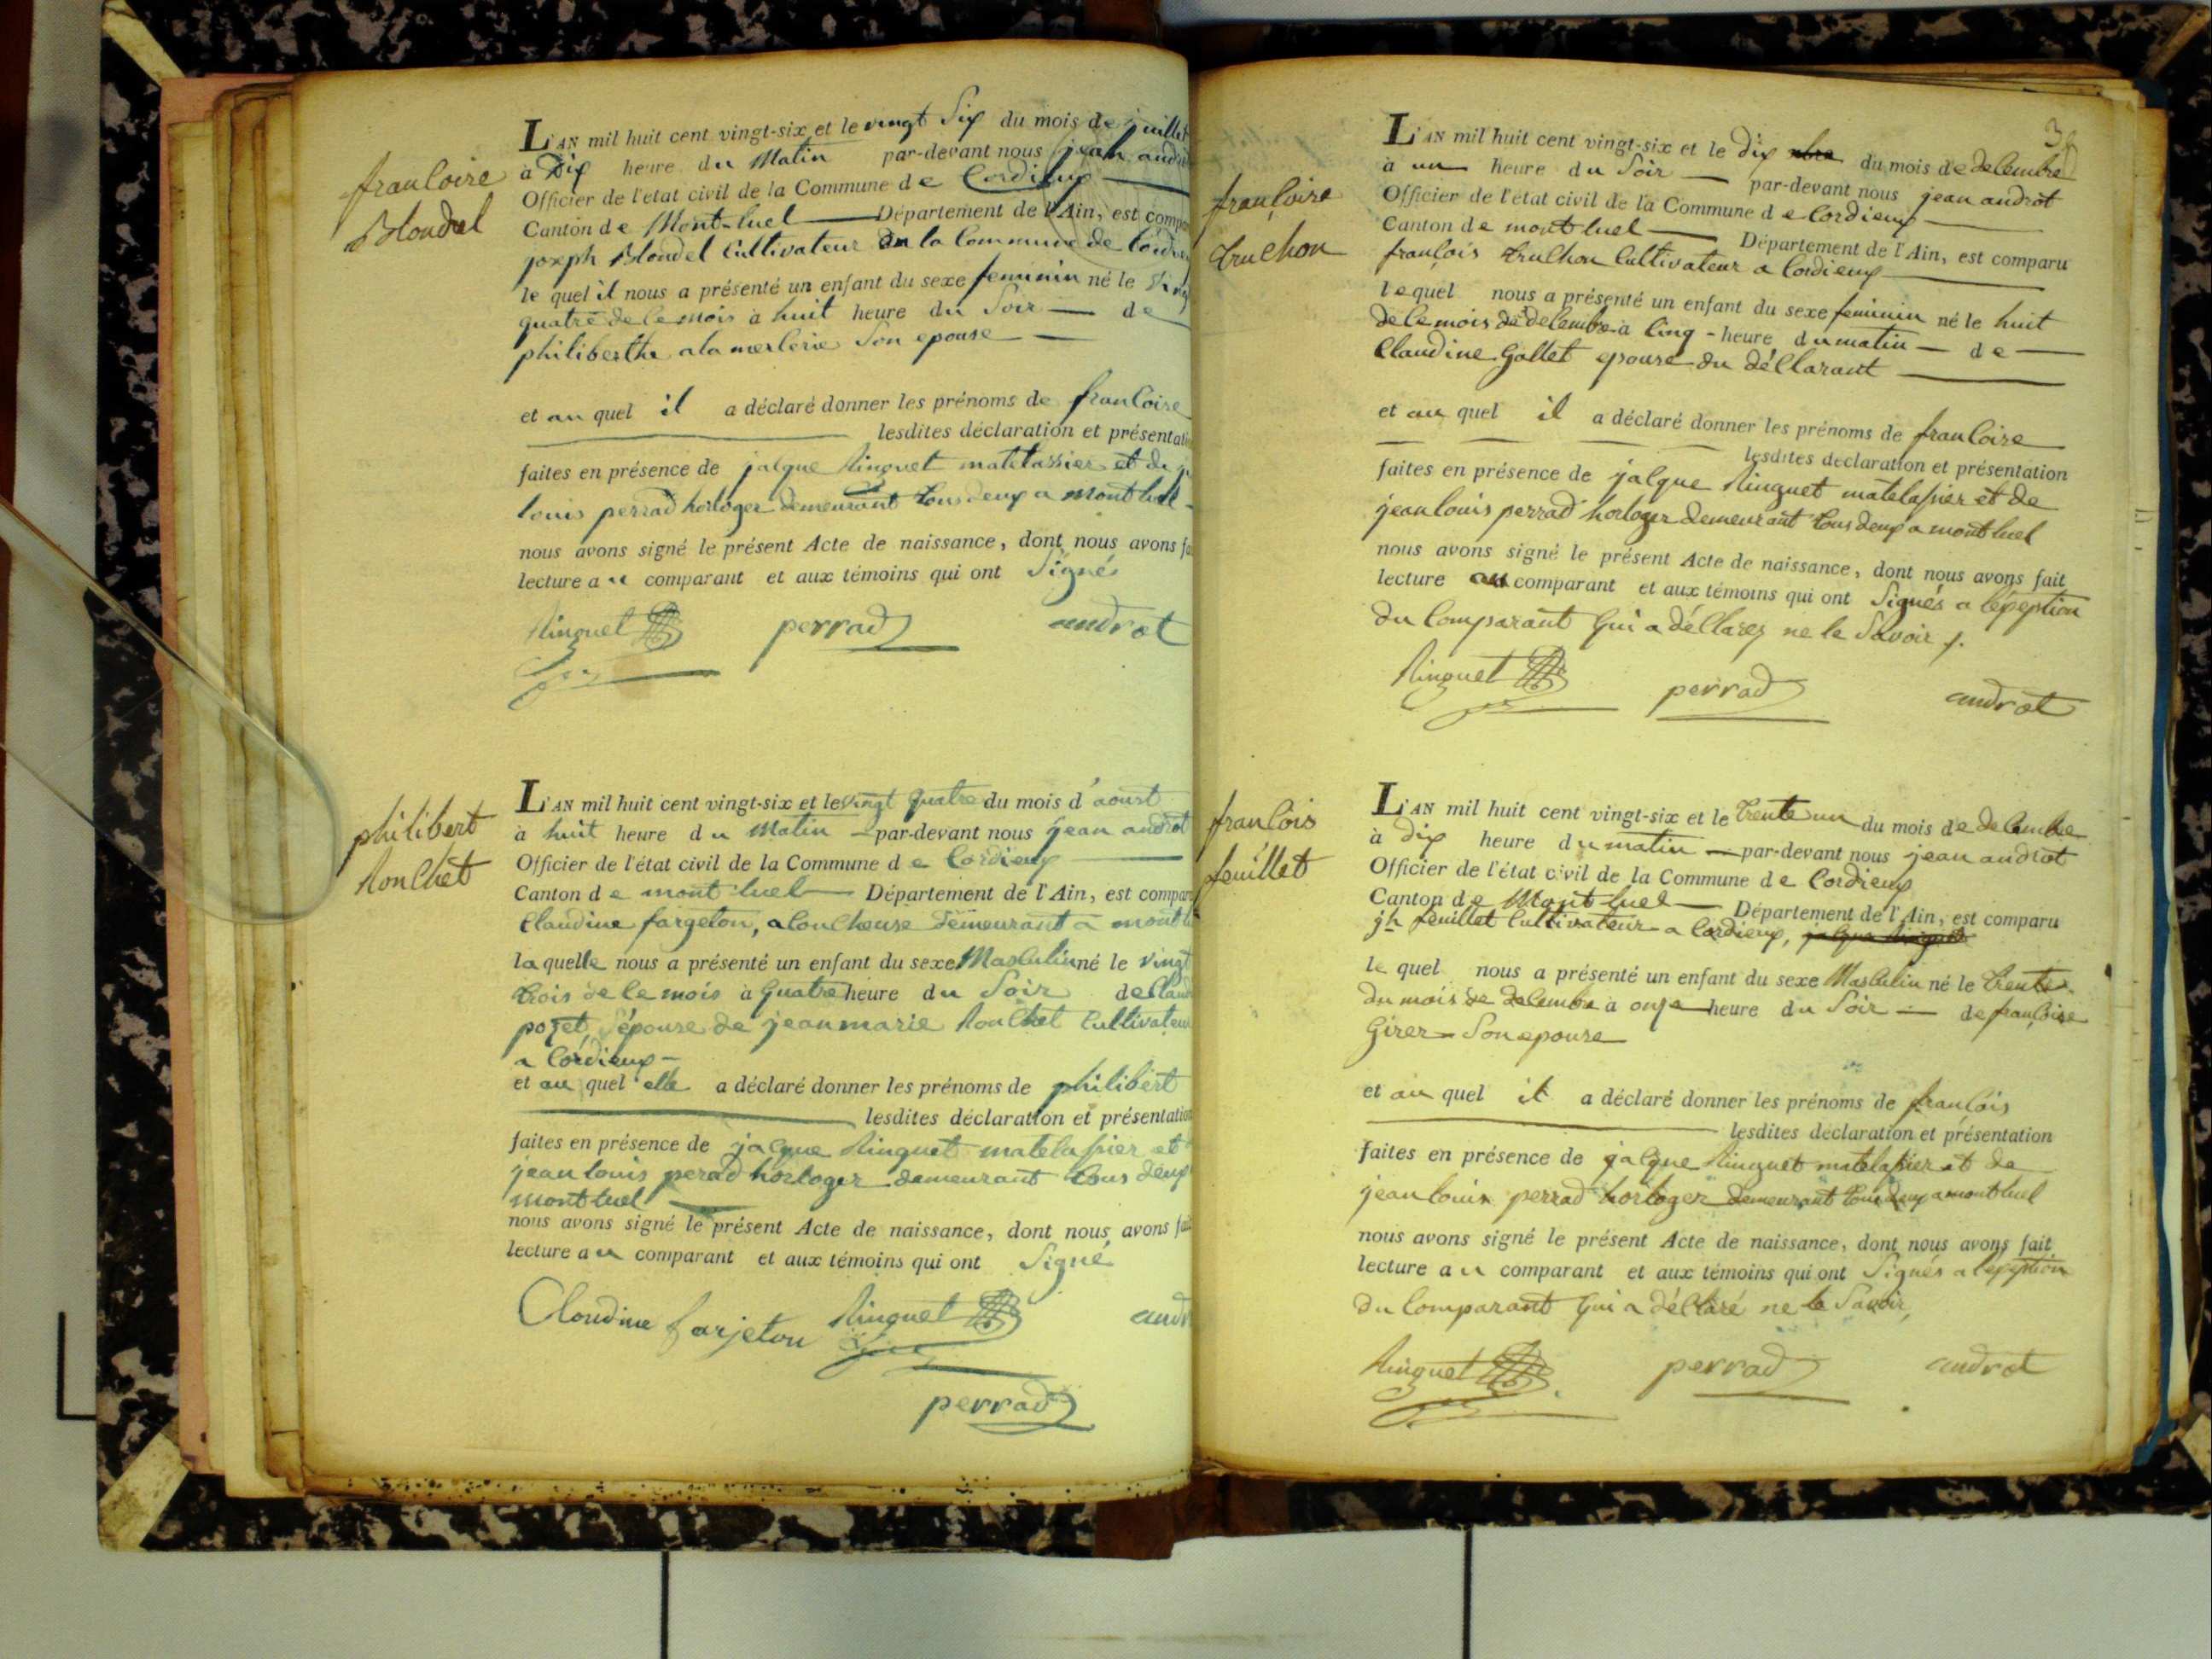 françoise
Blondel
L'AN mil huit cent vingt-six et le vingt Six du mois de juillet
à Dix heure du Matin par-devant nous jean andr
Officier de l'état civil de la Commune de Cordieux
Canton de Mont-luel Département de l'Ain, est compa
joseph Blondel Cultivateur de la Commune de Cordieu
le quel il nous a présenté un enfant du sexe feminin né le Ving
quatre de ce mois à huit heure du Soir de
philiberthe a la merlerie Son epouse
et au quel il a déclaré donner les prénoms de francoise
lesdites déclaration et présentati
faites en présence de jacque Ringuet matelassier et de je
louis perrad horloger demeurant tous deux a montluel
nous avons signé le présent Acte de naissance, dont nous avons fa
lecture au comparant et aux témoins qui ont Signés
Ringuet perrad androt
philibert
Ronchet
L'AN mil huit cent vingt-six et le vingt quatre du mois d'aoust
à huit heure du Matin par-devant nous jean androt
Officier de l'état civil de la Commune de Cordieux
Canton de mont-luel Département de l'Ain, est compar
Claudine fargeton, acoucheuse demeurant a montl
la quelle nous a présenté un enfant du sexe Masculin né le vingt
trois de ce mois à quatre heure du Soir de Claud
pozet, l'épouse de jean marie Ronchet Cultivateur
a Cordieux
et au quel elle a déclaré donner les prénoms de philibert
lesdites déclaration et présentation
faites en présence de jacque Ringuet matelassier et
jean louis perad horloger demeurant tous deux
montluel
nous avons signé le présent Acte de naissance, dont nous avons fai
lecture au comparant et aux témoins qui ont Signé
Cloudine farjeton Ringuet andr
perrad
françoise
truchon
L'AN mil huit cent vingt-six et le dix du mois de decembre
à un heure du Soir par-devant nous jean androt
Officier de l'état civil de la Commune de Cordieux
Canton de mont luel Département de l'Ain, est comparu
françois truchon Cultivateur a Cordieux
lequel nous a présenté un enfant du sexe feminin né le huit
de ce mois de decembre à cinq heure du matin de
Claudine Gallet epouse du déclarant
et au quel il a déclaré donner les prénoms de francoise
lesdites déclaration et présentation
faites en présence de jacque Ringuet matelassier et de
jean louis perrad horloger demeurant tous deux a montluel
nous avons signé le présent Acte de naissance, dont nous avons fait
lecture au comparant et aux témoins qui ont Signés a l'éxeption
du Comparant qui a déclarez ne le Savoir ./.
Ringuet perrad androt
francois
feuillet
L'AN mil huit cent vingt-six et le trente un du mois de decembre
à dix heure du matin par-devant nous jean androt
Officier de l'état civil de la Commune de Cordieux
Canton de Mont luel Département de l'Ain, est comparu
jh feuillet Cultivateur a Cordieux, jacque Ringuet
le quel nous a présenté un enfant du sexe Masculin né le trente
du mois de decembre à onze heure du Soir de françoise
Girer Son epouse
et au quel il a déclaré donner les prénoms de françois
lesdites déclaration et présentation
faites en présence de jacque Ringuet matelassier et de
jean louis perrad horloger demeurant tous deux a montluel
nous avons signé le présent Acte de naissance, dont nous avons fait
lecture au comparant et aux témoins qui ont Signés a l'exeption
du Comparant qui a déclaré ne le Savoir,
Ringuet perrad androt